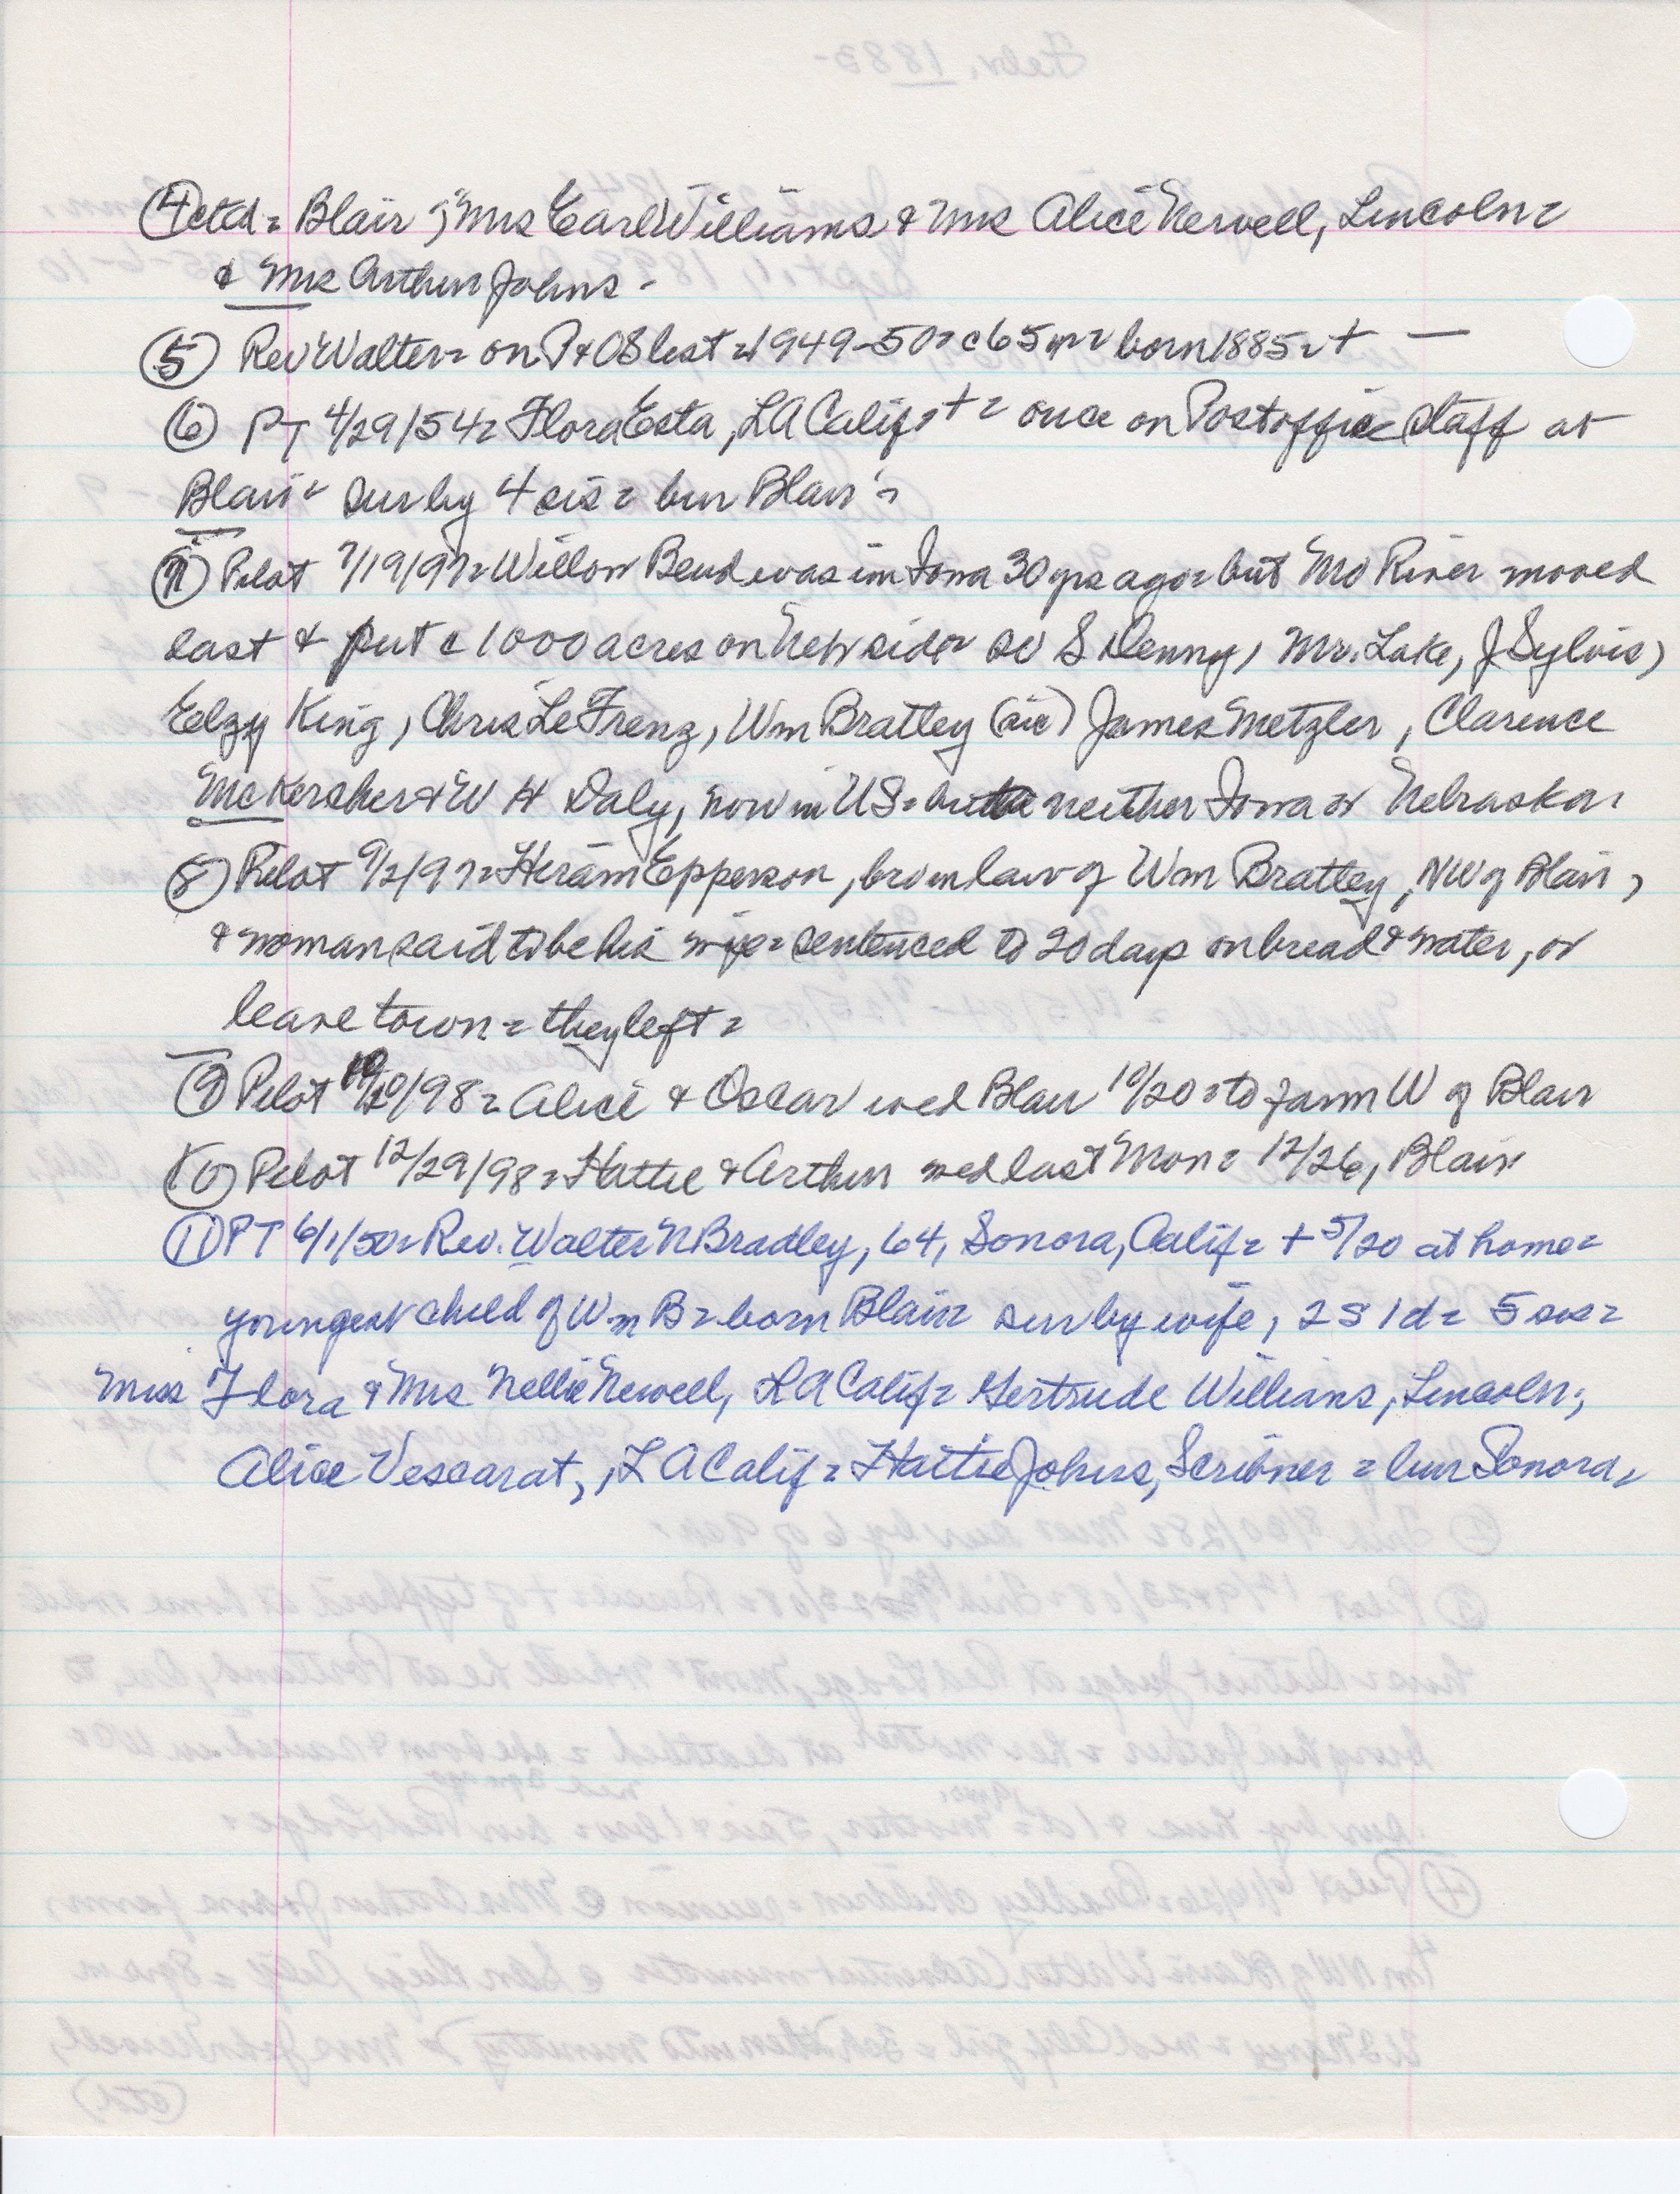 ④ ctd = Blair ; Mrs Earl Williams & Mrs Alice Newell, Lincoln =
& Mrs Arthur Johns -
⑤ Rev Walter = on P&OS list = 1949-50 = c 65 yr = born 1885 = + —
⑥ PT 4/29/54 = Flora Esta, LA Calif, + = once on Postoffice staff at
Blair = sur by 4 sis = bur Blair =
⑦ Pilot 7/19/97 = Willow Bend was in Iowa 30 yrs ago = but Mo River moved
east & put c 1000 acres on Neb side = so S Denny, Mr. Lake, J Sylvis,
Edzy King, Chris LeFrenz, Wm Bratley (sic) James Metzler, Clarence
McKercher & W H Daly, now in US = but neither Iowa or Nebraska =
⑧ Pilot 9/2/97 = Hiram Epperson, bro in law of Wm Bratley, NW of Blair,
& woman said to be his wife = sentenced to 20 days on bread & water, or
leave town = they left =
⑨ Pilot 10/20/98 = Alice & Oscar wed Blair 10/20 = to farm W of Blair
⑩ Pilot 12/29/98 = Hattie & Arthur wed last Mon = 12/26, Blair
⑪ PT 6/1/50 = Rev. Walter N Bradley, 64, Sonora, Calif = + 5/20 at home =
youngest child of Wm B = born Blair = sur by wife, 2 S 1 d = 5 sis =
Miss Flora & Mrs Nellie Newell, LA Calif = Gertrude Williams, Lincoln;
Alice Vescarat, , L A Calif = Hattie Johns, Scribner = bur Sonora =